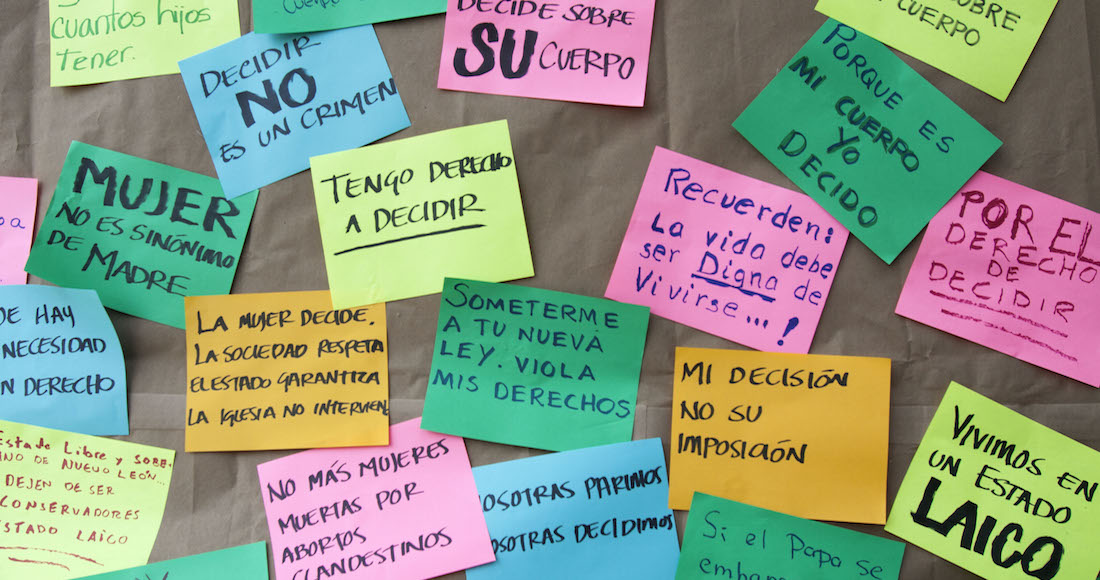 cuantos hijos
tener.
cuerpo
DECIDE SOBRE
SU CUERPO
SOBRE
CUERPO
DECIDIR
NO
ES UN CRIMEN
PORQUE ES
MI CUERPO
YO
DECIDO
MUJER
NO ES SINÓNIMO
DE MADRE
TENGO DERECHO
A DECIDIR
Recuerden:
La vida debe
ser Digna de
Vivirse...!
POR EL
DERECHO
DE
DECIDIR
HAY
NECESIDAD
DERECHO
LA MUJER DECIDE.
LA SOCIEDAD RESPETA
EL ESTADO GARANTIZA
LA IGLESIA NO INTERVIEN
SOMETERME
A TU NUEVA
LEY. VIOLA
MIS DERECHOS
MI DECISIÓN
NO SU
IMPOSICIÓN
VIVIMOS EN
UN ESTADO
LAICO
Estado Libre y SOBE
DE NUEVO LEÓN...
DEJEN DE SER
CONSERVADORES
ESTADO LAICO
NO MÁS MUJERES
MUERTAS POR
ABORTOS
CLANDESTINOS
NOSOTRAS PARIMOS
NOSOTRAS DECIDIMOS
Si el Papa se